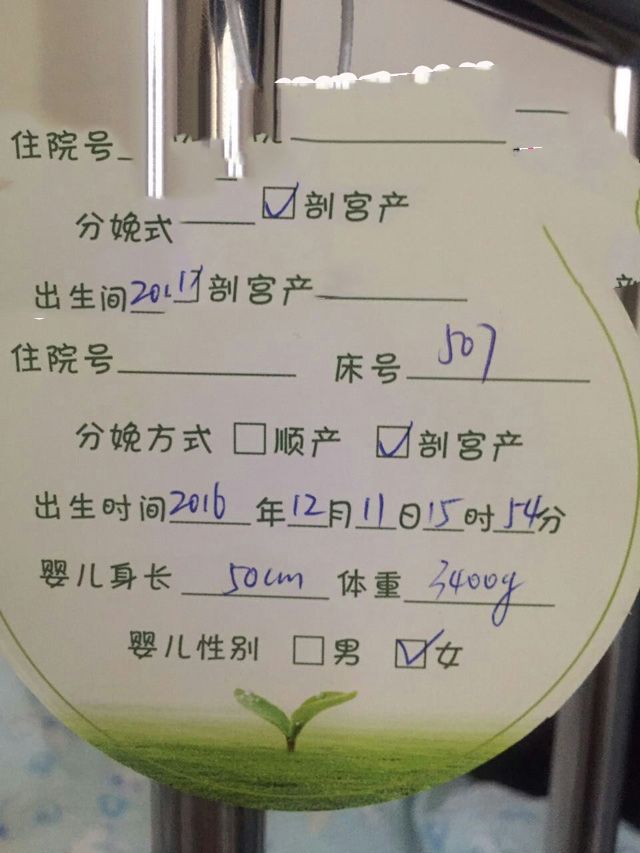 住院号
分娩式 ☑剖宫产
出生间201 剖宫产
住院号 床号 507
分娩方式 □顺产 ☑剖宫产
出生时间2016年12月11日15时54分
婴儿身长 50cm 体重 3400g
婴儿性别 □男 ☑女